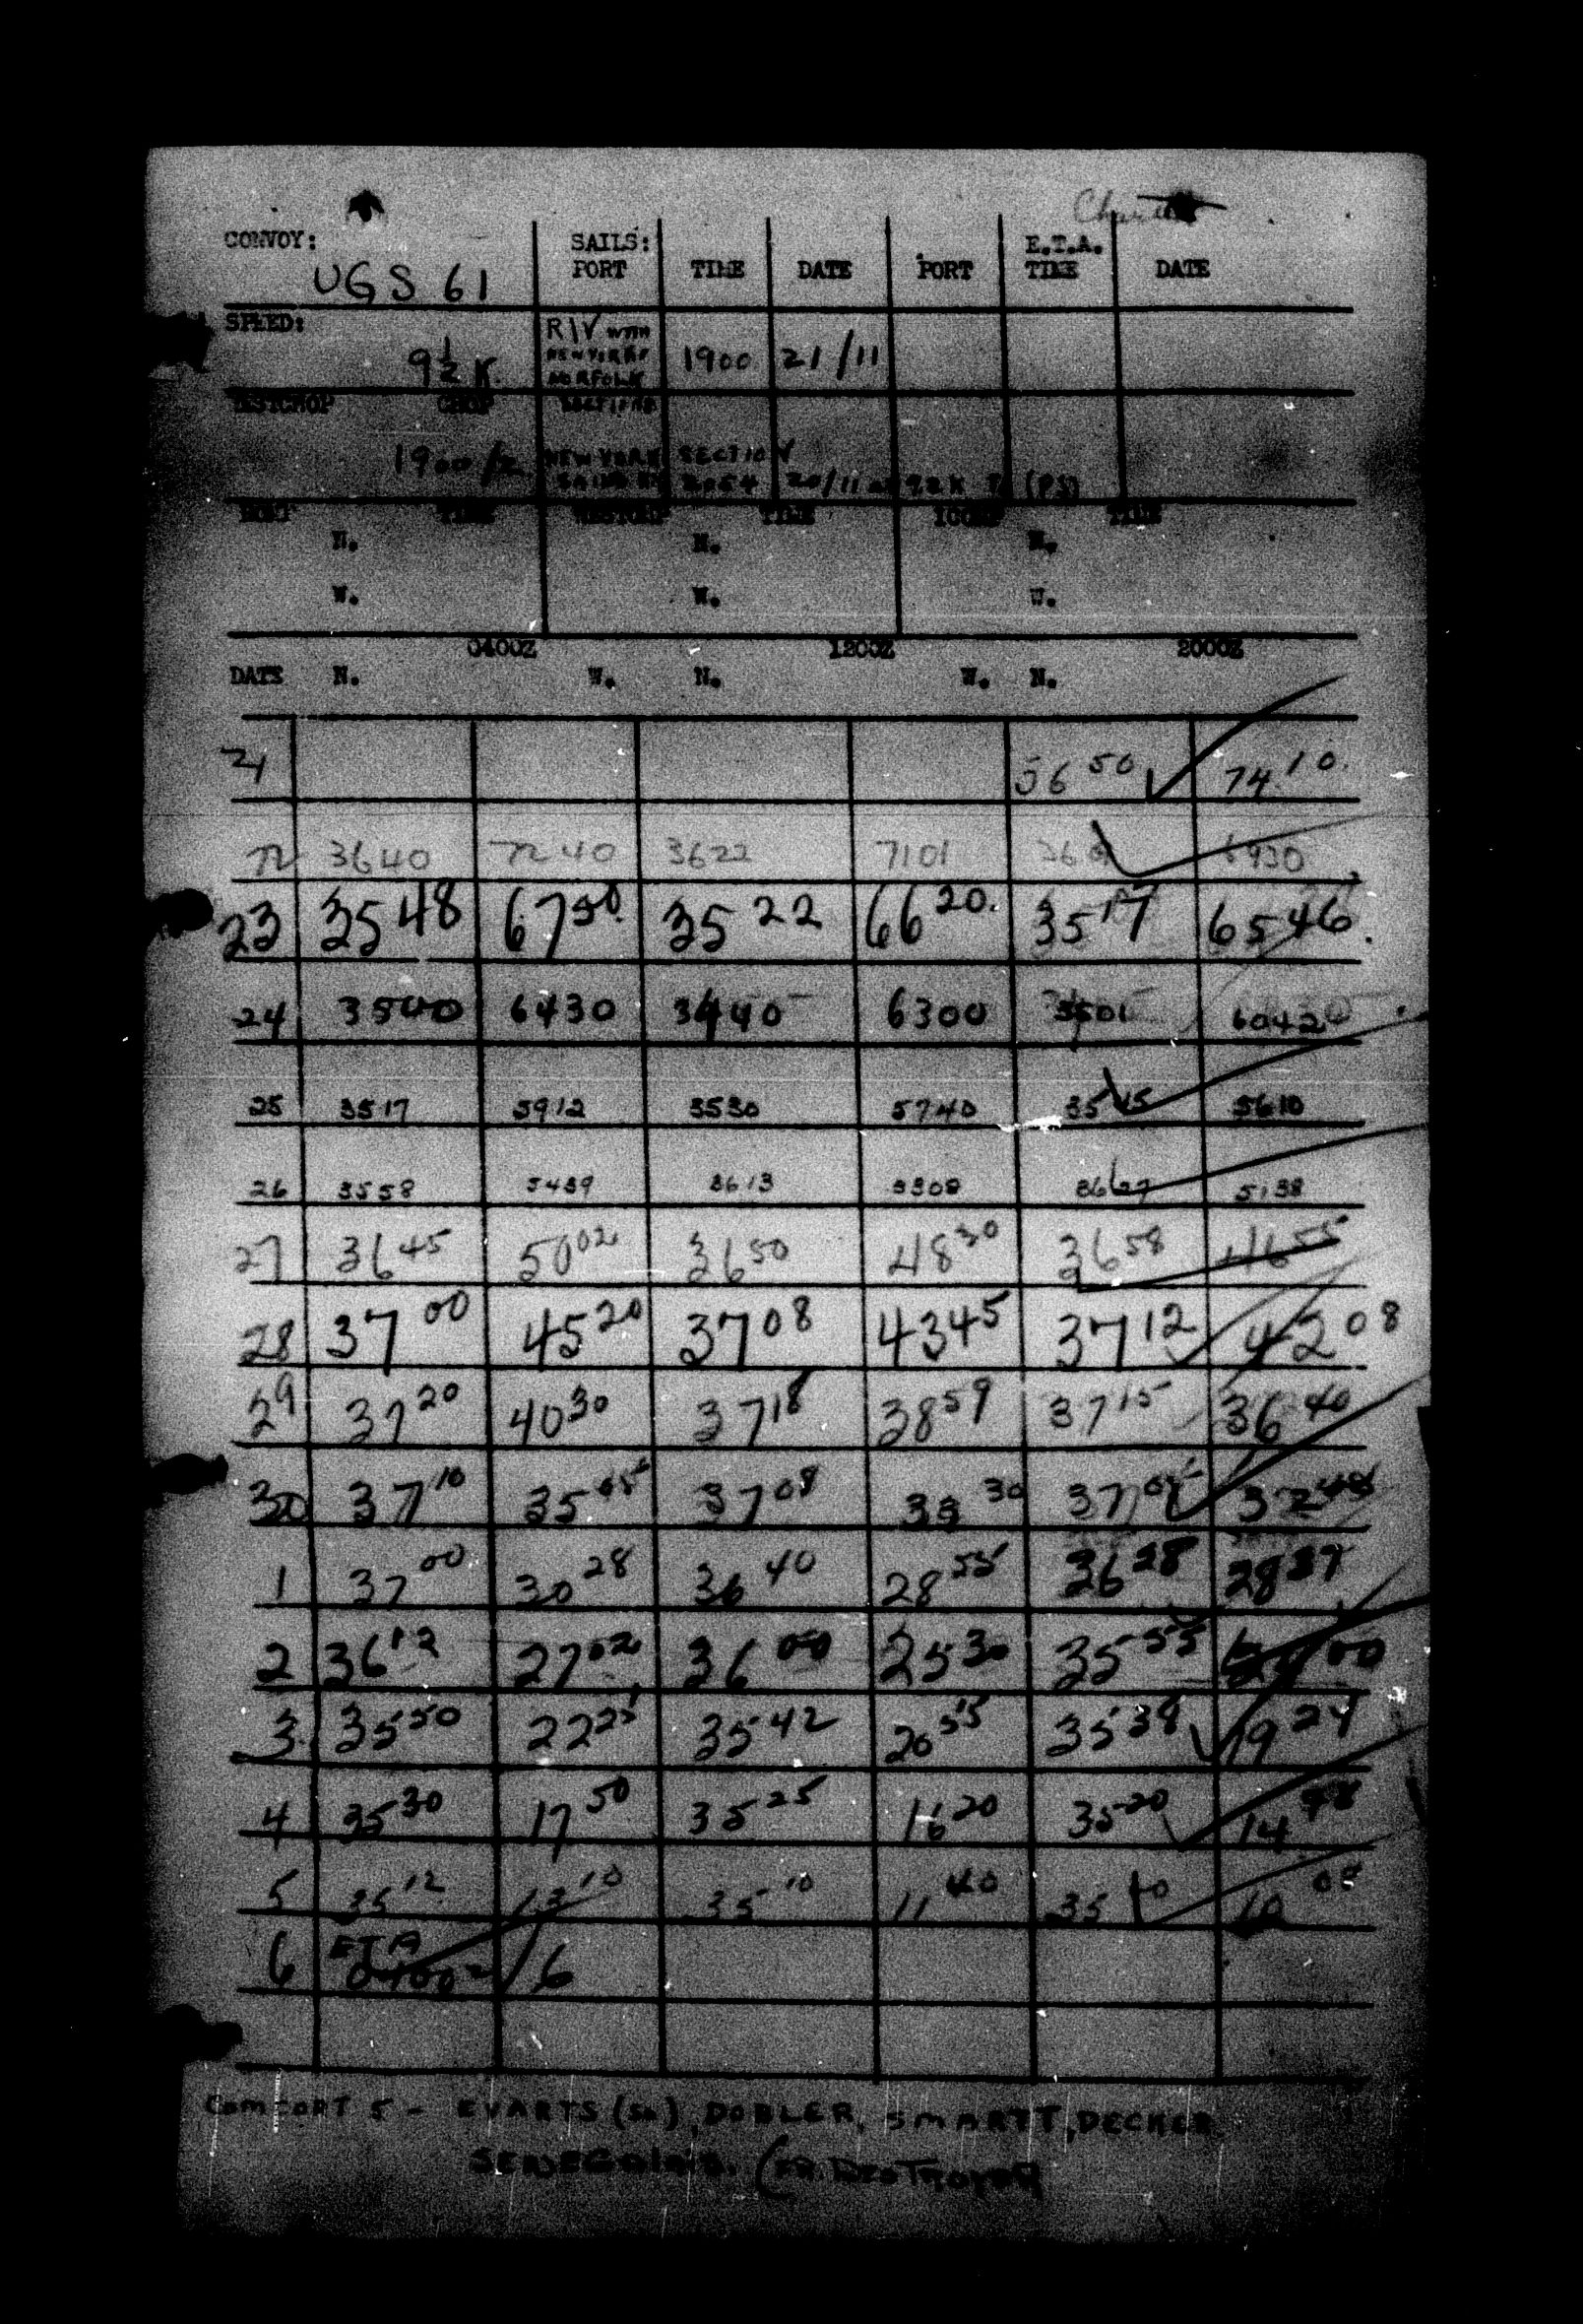 CONVOY: SAILS: E.T.A.
PORT TIME DATE PORT TIME DATE
UGS 61
SPEED: R/V WITH
9½ K. NEW YORK & 1900 21/11
NORFOLK
WESTCHOP CHOP SECTIONS
1900/2 NEW YORK SECTION
2054 20/11 9.2K (PS)
PORT TIME WESTCHOP TIME TIME
N. N. N.
W. W. W.
0400Z 1200Z 2000Z
DATE N. W. N. W. N.
21 36 50 74 10.
22 3640 7240 3622 7101 6930
23 35 48 67 50. 35 22 66 20. 35 17 65 46.
24 3540 6430 3440 6300 3501
25 3517 5912 3530 5740 35 15 5610
26 3558 5439 3613 5308 3627 5138
27 36 45 50 02 36 50 48 30 36 58 46 55
28 37 00 45 20 37 08 43 45 37 12 42 08
29 37 20 40 30 37 18 38 59 37 15 36 40
30 37 10 35 05 37 08 33 30 37 05 32 48
1 37 00 30 28 36 40 28 55 36 28 28 37
2 36 12 27 02 36 00 25 30 35 55 00
3 35 50 22 25 35 42 20 55 35 38 19 24
4 35 30 17 50 35 25 16 20 35 20 14
5 35 12 13 10 35 10 11 40 35 10 10 08
6 ETA
0400Z/6
COMTORT 5 - EVARTS (SO), DOBLER, SMARTT, DECKER,
SENEGALAIS. (FR. DESTROYER